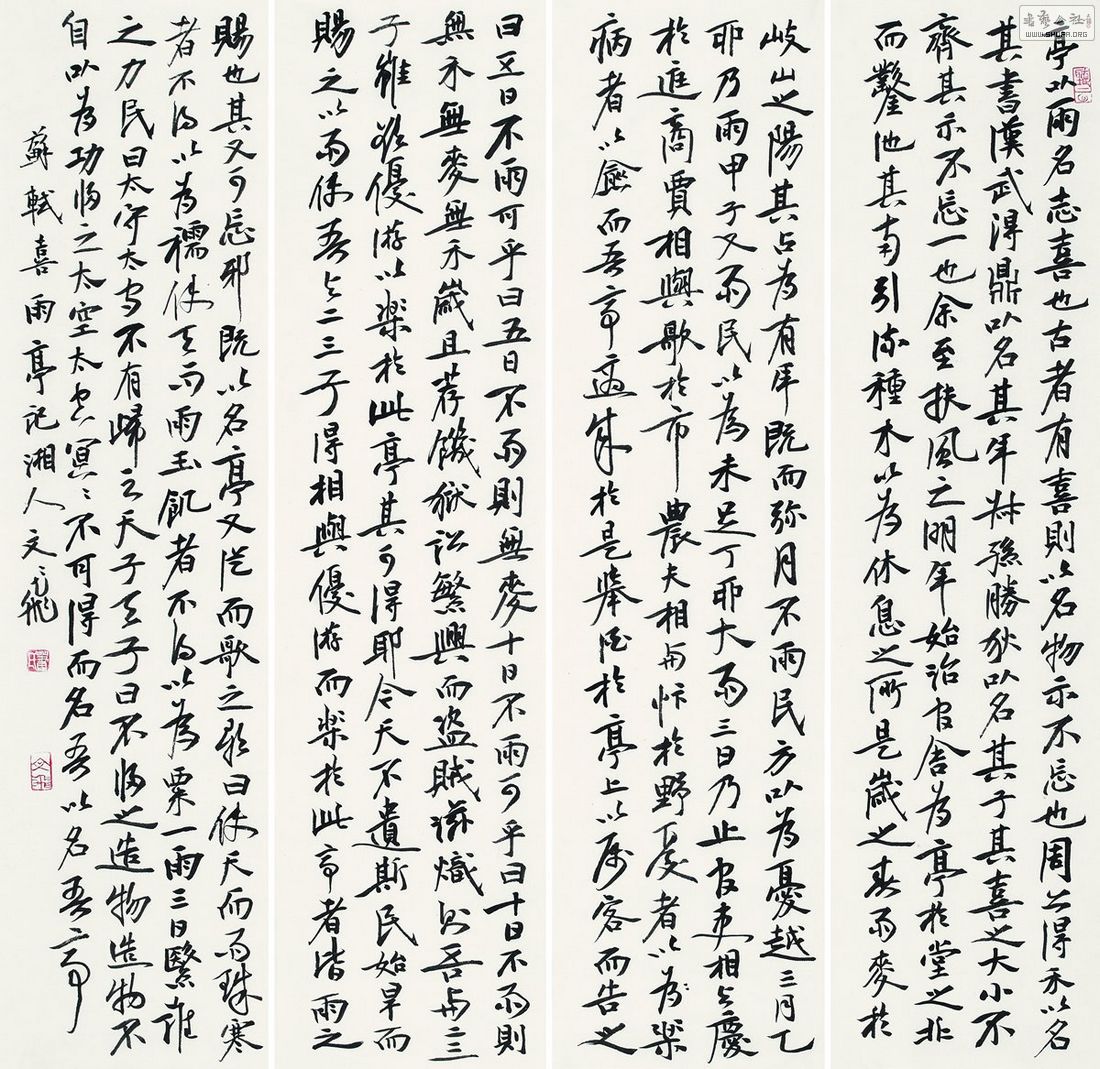 亭以雨名志喜也古者有喜則以名物示不忘也周公得禾以名
其書漢武得鼎以名其年叔孫勝狄以名其子其喜之大小不
齊其示不忘一也余至扶風之明年始治官舍為亭於堂之北
而鑿池其南引流種木以為休息之所是歲之春雨麥於
岐山之陽其占為有年既而弥月不雨民方以為憂越三月乙
卯乃雨甲子又雨民以為未足丁卯大雨三日乃止官吏相与慶
於庭商賈相與歌於市農夫相与忭於野憂者以為樂
病者以愈而吾亭適成於是舉酒於亭上以属客而告之
曰五日不雨可乎曰五日不雨則無麥十日不雨可乎曰十日不雨則
無禾無麥無禾歲且荐饑獄訟繁興而盜賊滋熾則吾与二三
子雖欲優游以樂於此亭其可得耶今天不遺斯民始旱而
賜之以雨使吾与二三子得相與優游而樂於此亭者皆雨之
賜也其又可忘邪既以名亭又從而歌之歌曰使天而雨珠寒
者不得以為襦使天而雨玉飢者不得以為粟一雨三日繄誰
之力民曰太守太守不有歸之天子天子曰不歸之造物造物不
自以為功歸之太空太空冥〻不可得而名吾以名吾亭
蘇軾喜雨亭記湘人文飛
WWW.SHUFA.ORG